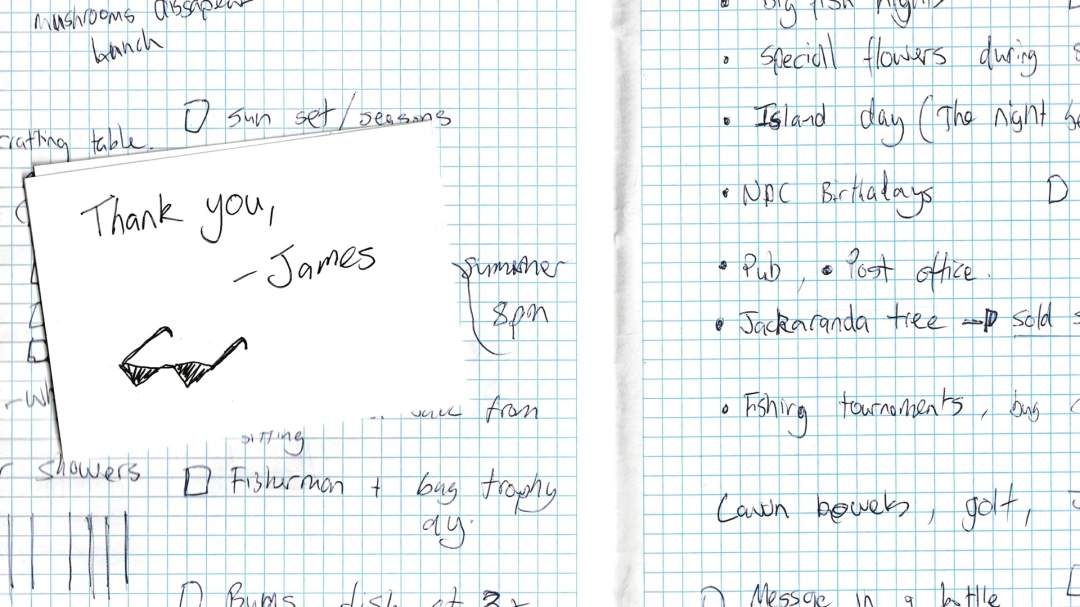 mushrooms dissapear
bunch
sun set/seasons
crafting table.
Thank you,
- James
Summer
8pm
from
sitting
showers
Fisherman + bug trophy
day.
Big fish nights
Speciall flowers during
Island day (The night
NPC Birthadays
Pub, • Post office.
Jackaranda tree → sold
Fishing tournaments, bug
Lawn bowels, golf,
Message in a bottle